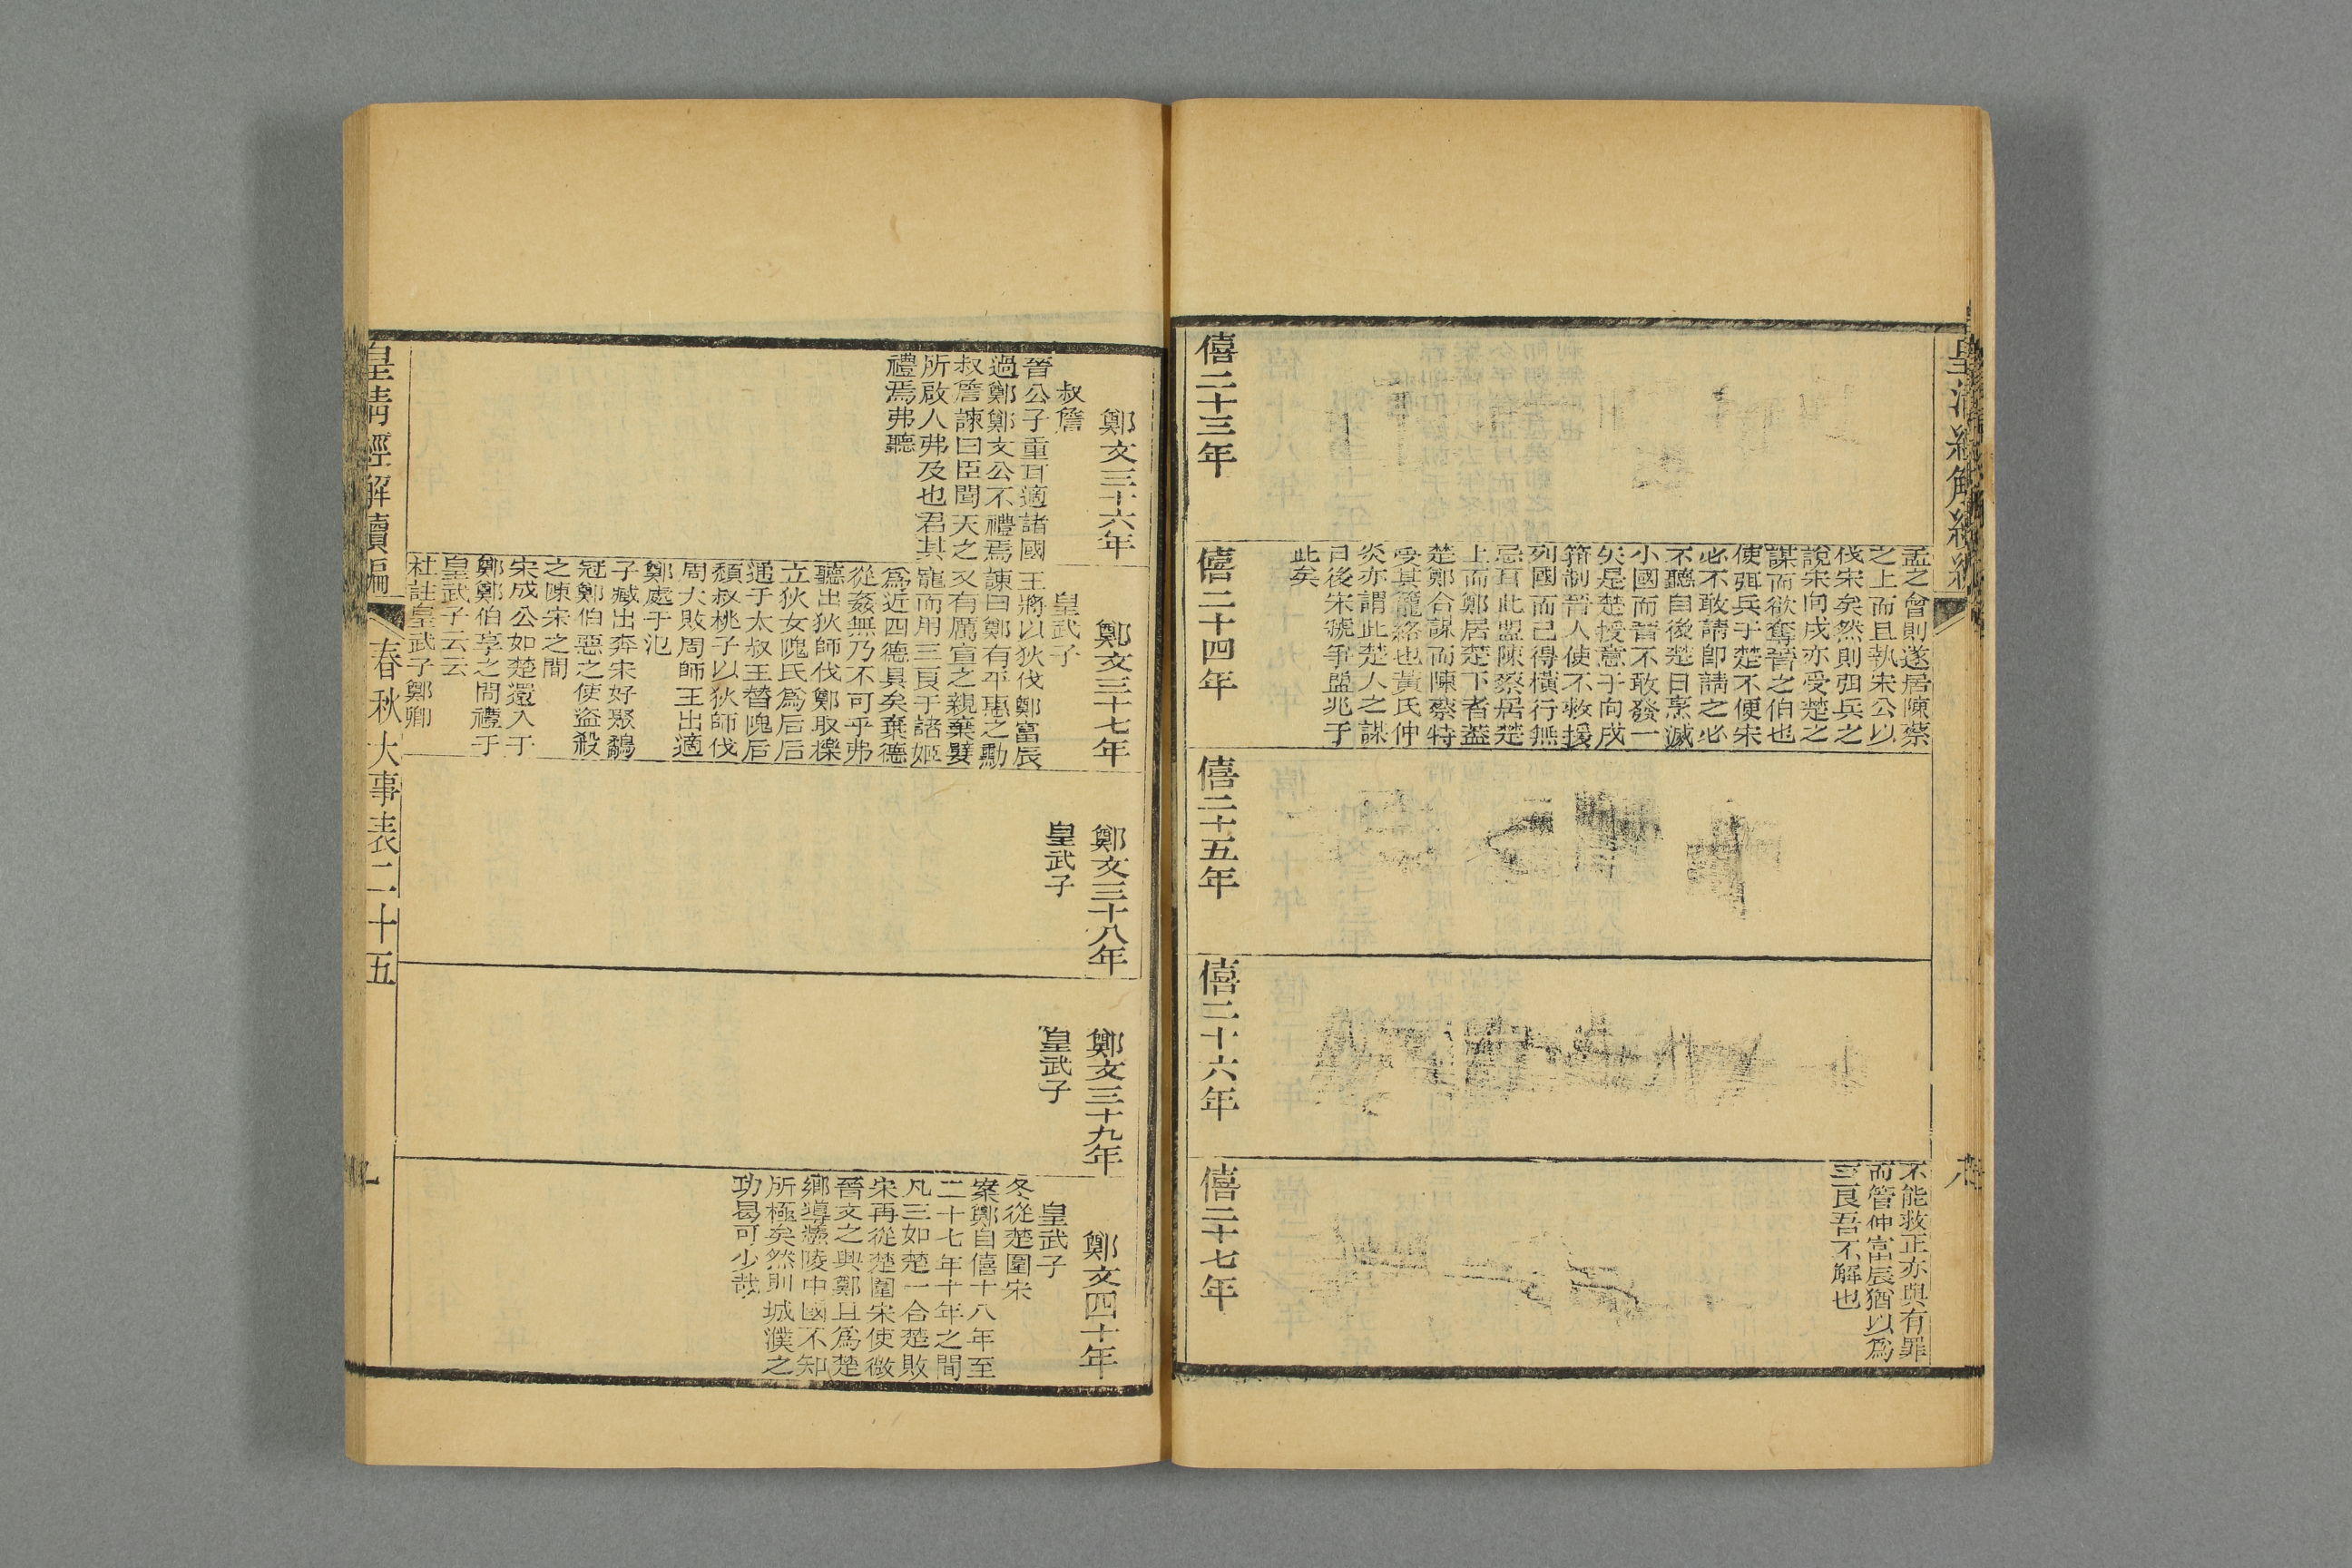 孟之會則遂居陳蔡
之上而且執宋公以
伐宋矣然則弭兵之
說宋向戌亦受楚之
謀而欲奪晉之伯也
使弭兵于楚不便宋
必不敢請卽請之必
不聽自後楚日烹滅
小國而晉不敢發一
矢是楚授意于向戌
箝制晉人使不救援
列國而己得橫行無
忌耳此盟陳蔡居楚
上而鄭居楚下者蓋
楚鄭合謀而陳蔡特
受其籠絡也黃氏仲
炎亦謂此楚人之謀
日後宋虢爭盟兆于
此矣
不能救正亦與有罪
而管仲富辰猶以爲
三良吾不解也
僖二十三年
僖二十四年
僖二十五年
僖二十六年
僖二十七年
鄭文三十六年
叔詹
晉公子重耳適諸國
過鄭鄭文公不禮焉
叔詹諫曰臣聞天之
所啟人弗及也君其
禮焉弗聽
鄭文三十七年
皇武子
王將以狄伐鄭富辰
諫曰鄭有平惠之勳
又有厲宣之親棄嬖
寵而用三良于諸姬
爲近四德具矣棄德
從姦無乃不可乎弗
聽出狄師伐鄭取櫟
立狄女隗氏爲后后
通于太叔王替隗后
頹叔桃子以狄師伐
周大敗周師王出適
鄭處于氾
子臧出奔宋好聚鷸
冠鄭伯惡之使盜殺
之陳宋之間
宋成公如楚還入于
鄭鄭伯享之問禮于
皇武子云云
杜註皇武子鄭卿
鄭文三十八年
皇武子
鄭文三十九年
皇武子
鄭文四十年
皇武子
冬從楚圍宋
案鄭自僖十八年至
二十七年十年之間
凡三如楚一合楚敗
宋再從楚圍宋使微
晉文之興鄭且爲楚
鄉導憑陵中國不知
所極矣然則城濮之
功曷可少哉
皇清經解續編
春秋大事表二十五